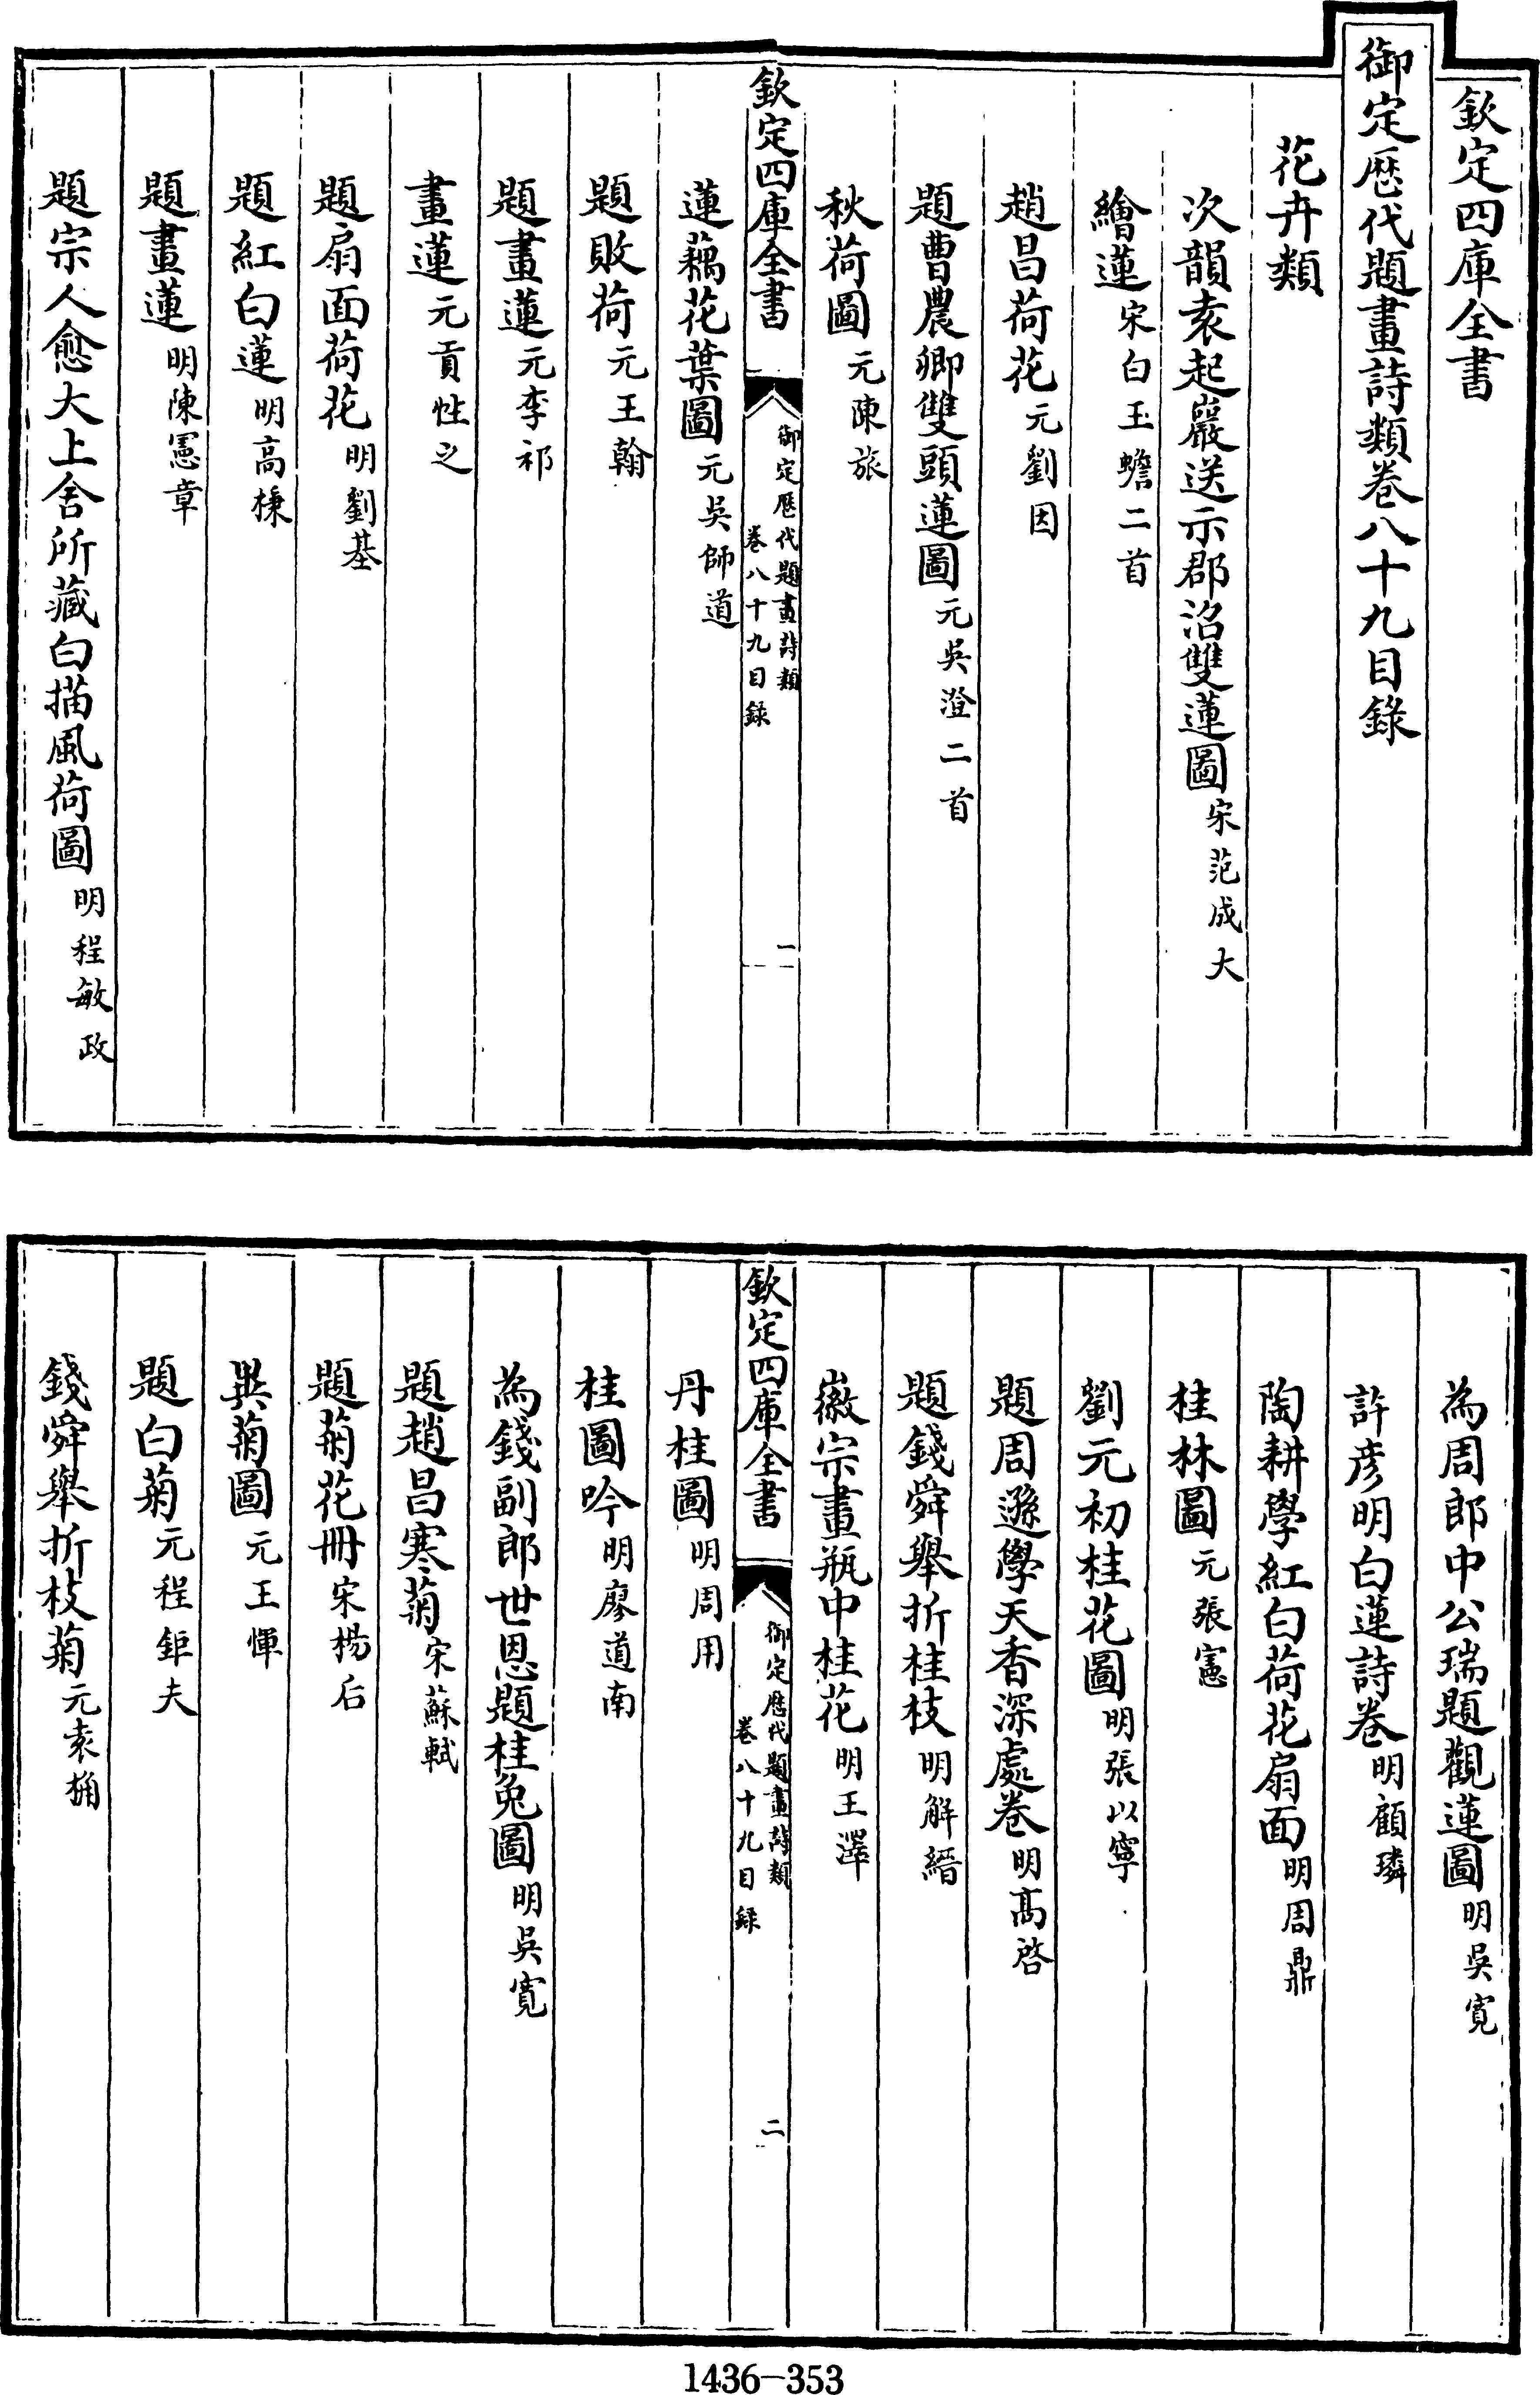 欽定四庫全書
御定歴代題畫詩類卷八十九目錄
花卉類
次韻袁起巖送示郡沼雙蓮圖宋范成大
繪蓮宋白玉蟾二首
趙昌荷花元劉因
題曹農卿雙頭蓮圖元吳澄二首
秋荷圖元陳旅
欽定四庫全書
御定歴代題畫詩類
卷八十九目錄
一
蓮藕花葉圖元吳師道
題敗荷元王翰
題畫蓮元李祁
畫蓮元貢性之
題扇面荷花明劉基
題紅白蓮明高棅
題畫蓮明陳憲章
題宗人愈大上舍所藏白描風荷圖明程敏政
為周郎中公瑞題觀蓮圖明吳寬
許彦明白蓮詩卷明顧璘
陶耕學紅白荷花扇面明周鼎
桂林圖元張憲
劉元初桂花圖明張以寧
題周遜學天香深處卷明高啓
題錢舜舉折桂枝明解縉
徽宗畫瓶中桂花明王澤
欽定四庫全書
御定歴代題畫詩類
卷八十九目録
二
丹桂圖明周用
桂圖吟明廖道南
為錢副郎世恩題桂兔圖明吳寬
題趙昌寒菊宋蘇軾
題菊花冊宋楊后
異菊圖元王惲
題白菊元程鉅夫
錢舜舉折枝菊元袁桷
1436-353